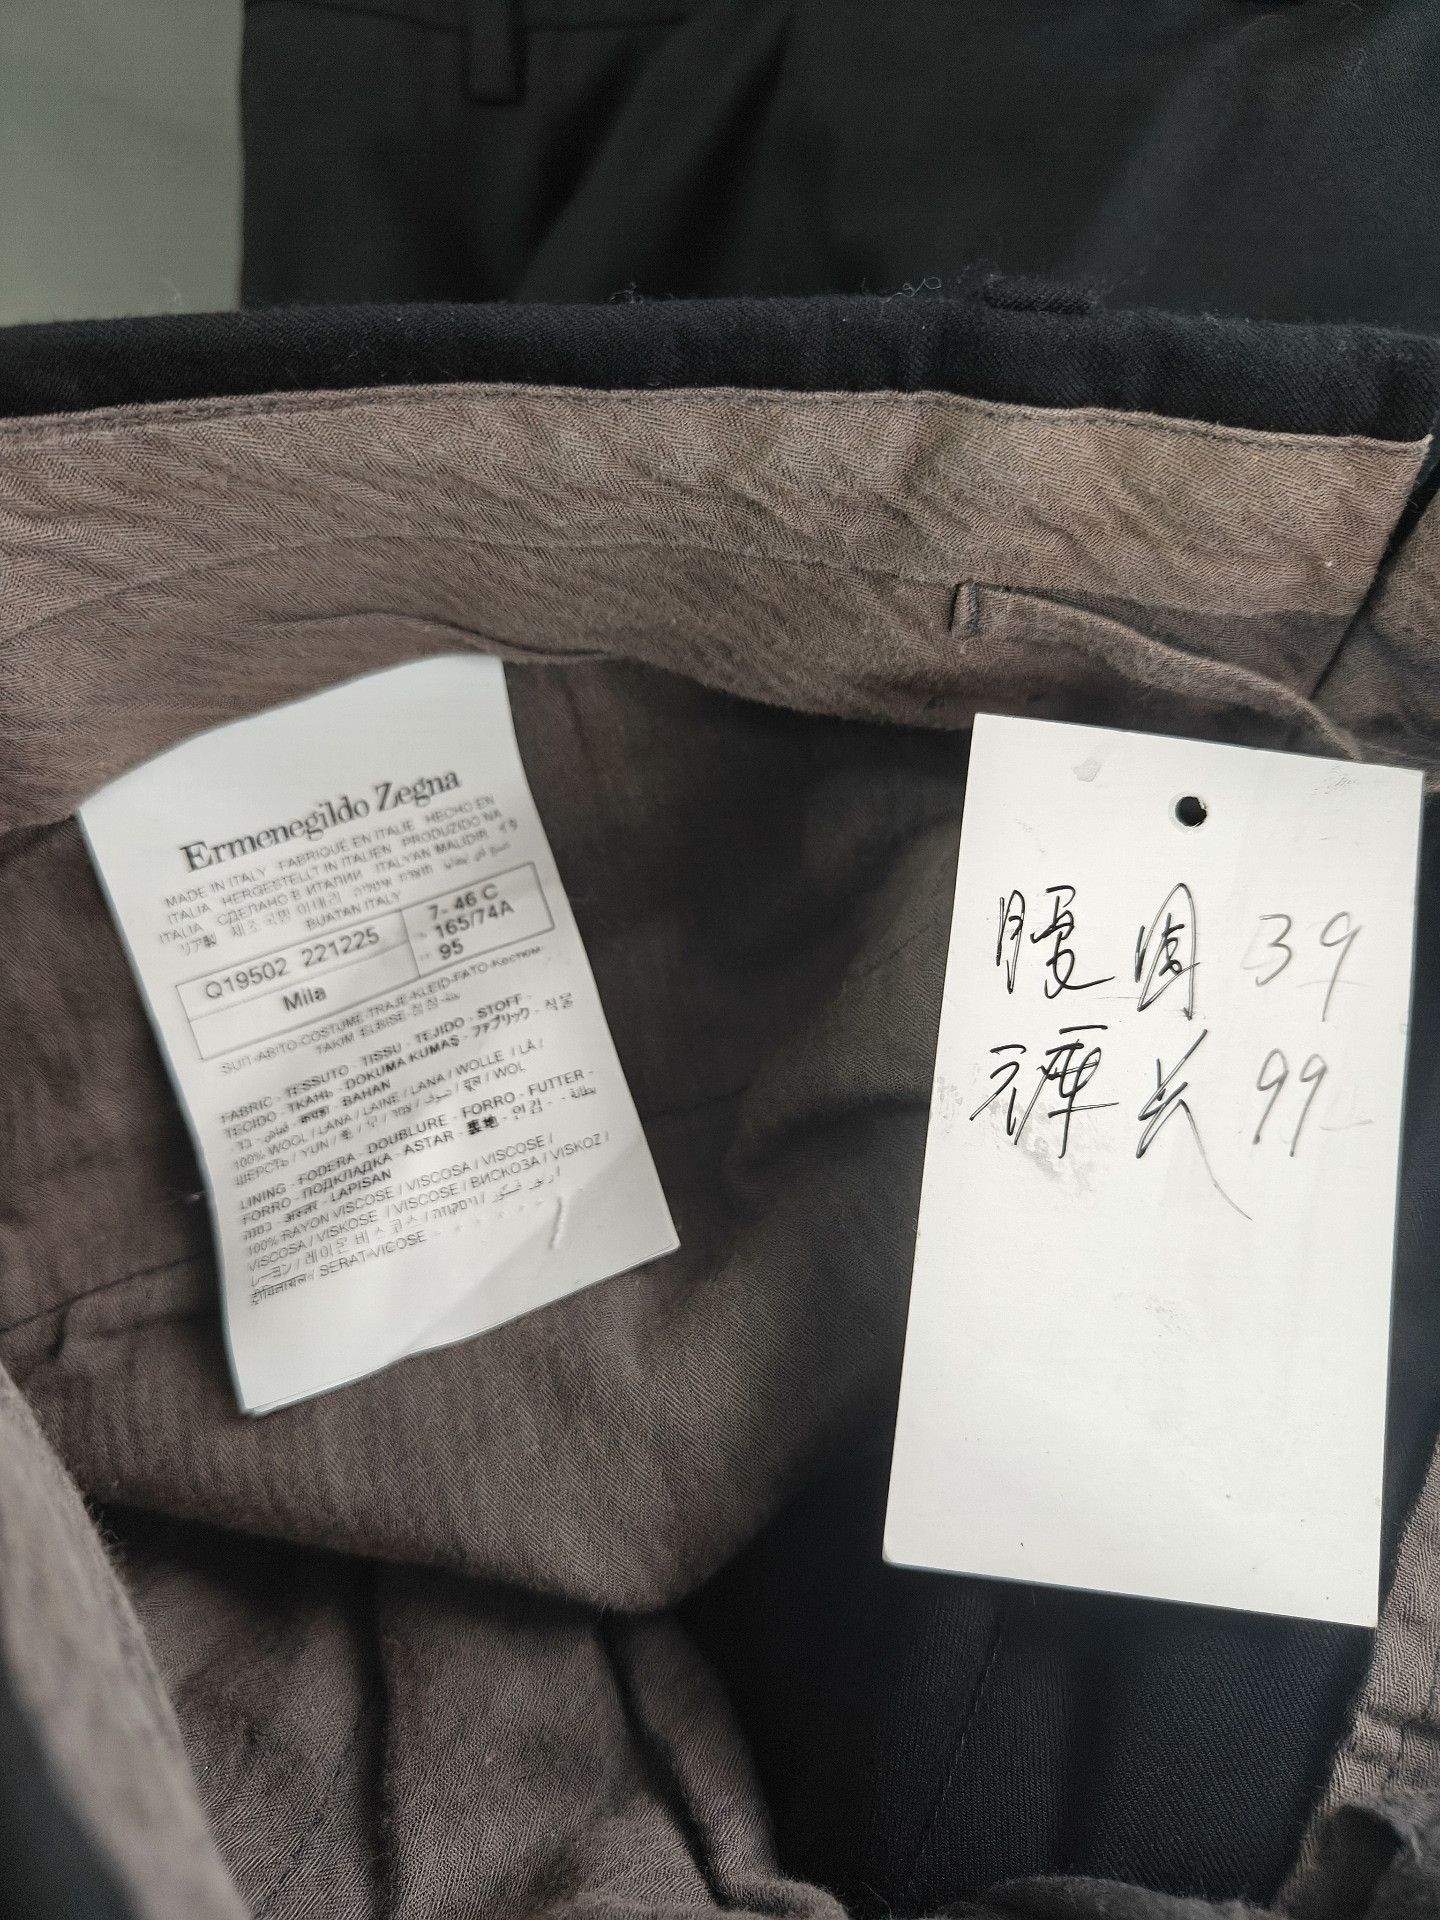 Ermenegildo Zegna
MADE IN ITALY FABRIQUÉ EN ITALIE HECHO EN
ITALIA HERGESTELLT IN ITALIEN PRODUZIDO NA
ITALIA СДЕЛАНО В ИТАЛИИ ITALYAN MALIDIR
BUATAN ITALY
Q19502 221225
Mila
7- 46 C
165/74A
95
SUIT-ABITO-COSTUME-TRAJE-KLEID-FATO-Костюм-
TAKIM ELBISE-
FABRIC - TESSUTO - TISSU - TEJIDO - STOFF -
TECIDO - ТКАНЬ - DOKUMA KUMAŞ - ファブリック - 직물
BAHAN
100% WOOL / LANA / LAINE / LANA / WOLLE / LÃ /
ШЕРСТЬ / YUN / WOL
LINING - FODERA - DOUBLURE - FORRO - FUTTER -
FORRO - ПОДКЛАДКА - ASTAR - 裏地 - 안감 - بطانة -
LAPISAN
100% RAYON VISCOSE / VISCOSA / VISCOSE /
VISCOSA / VISKOSE / VISCOSE / ВИСКОЗА / VISKOZ /
レーヨン / 레이온 비스코스 /
SERAT-VICOSE
腰围 39
裤长 99